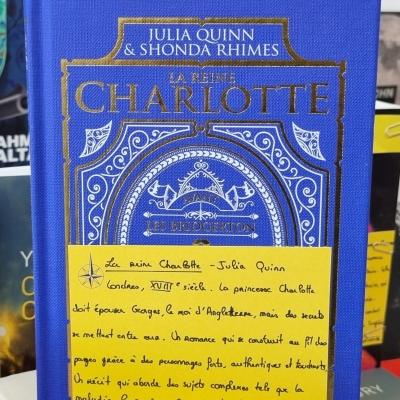 JULIA QUINN
& SHONDA RHIMES
LA REINE
CHARLOTTE
AVANT
LES BRIDGERTON
La reine Charlotte - Julia Quinn
Londres, XVIIIe siècle. La princesse Charlotte
doit épouser Georges, le roi d'Angleterre, mais des secrets
se mettent entre eux. Un romance qui se construit au fil des
pages grâce à des personnages forts, authentiques et touchants.
Un récit qui aborde des sujets complexes tels que la